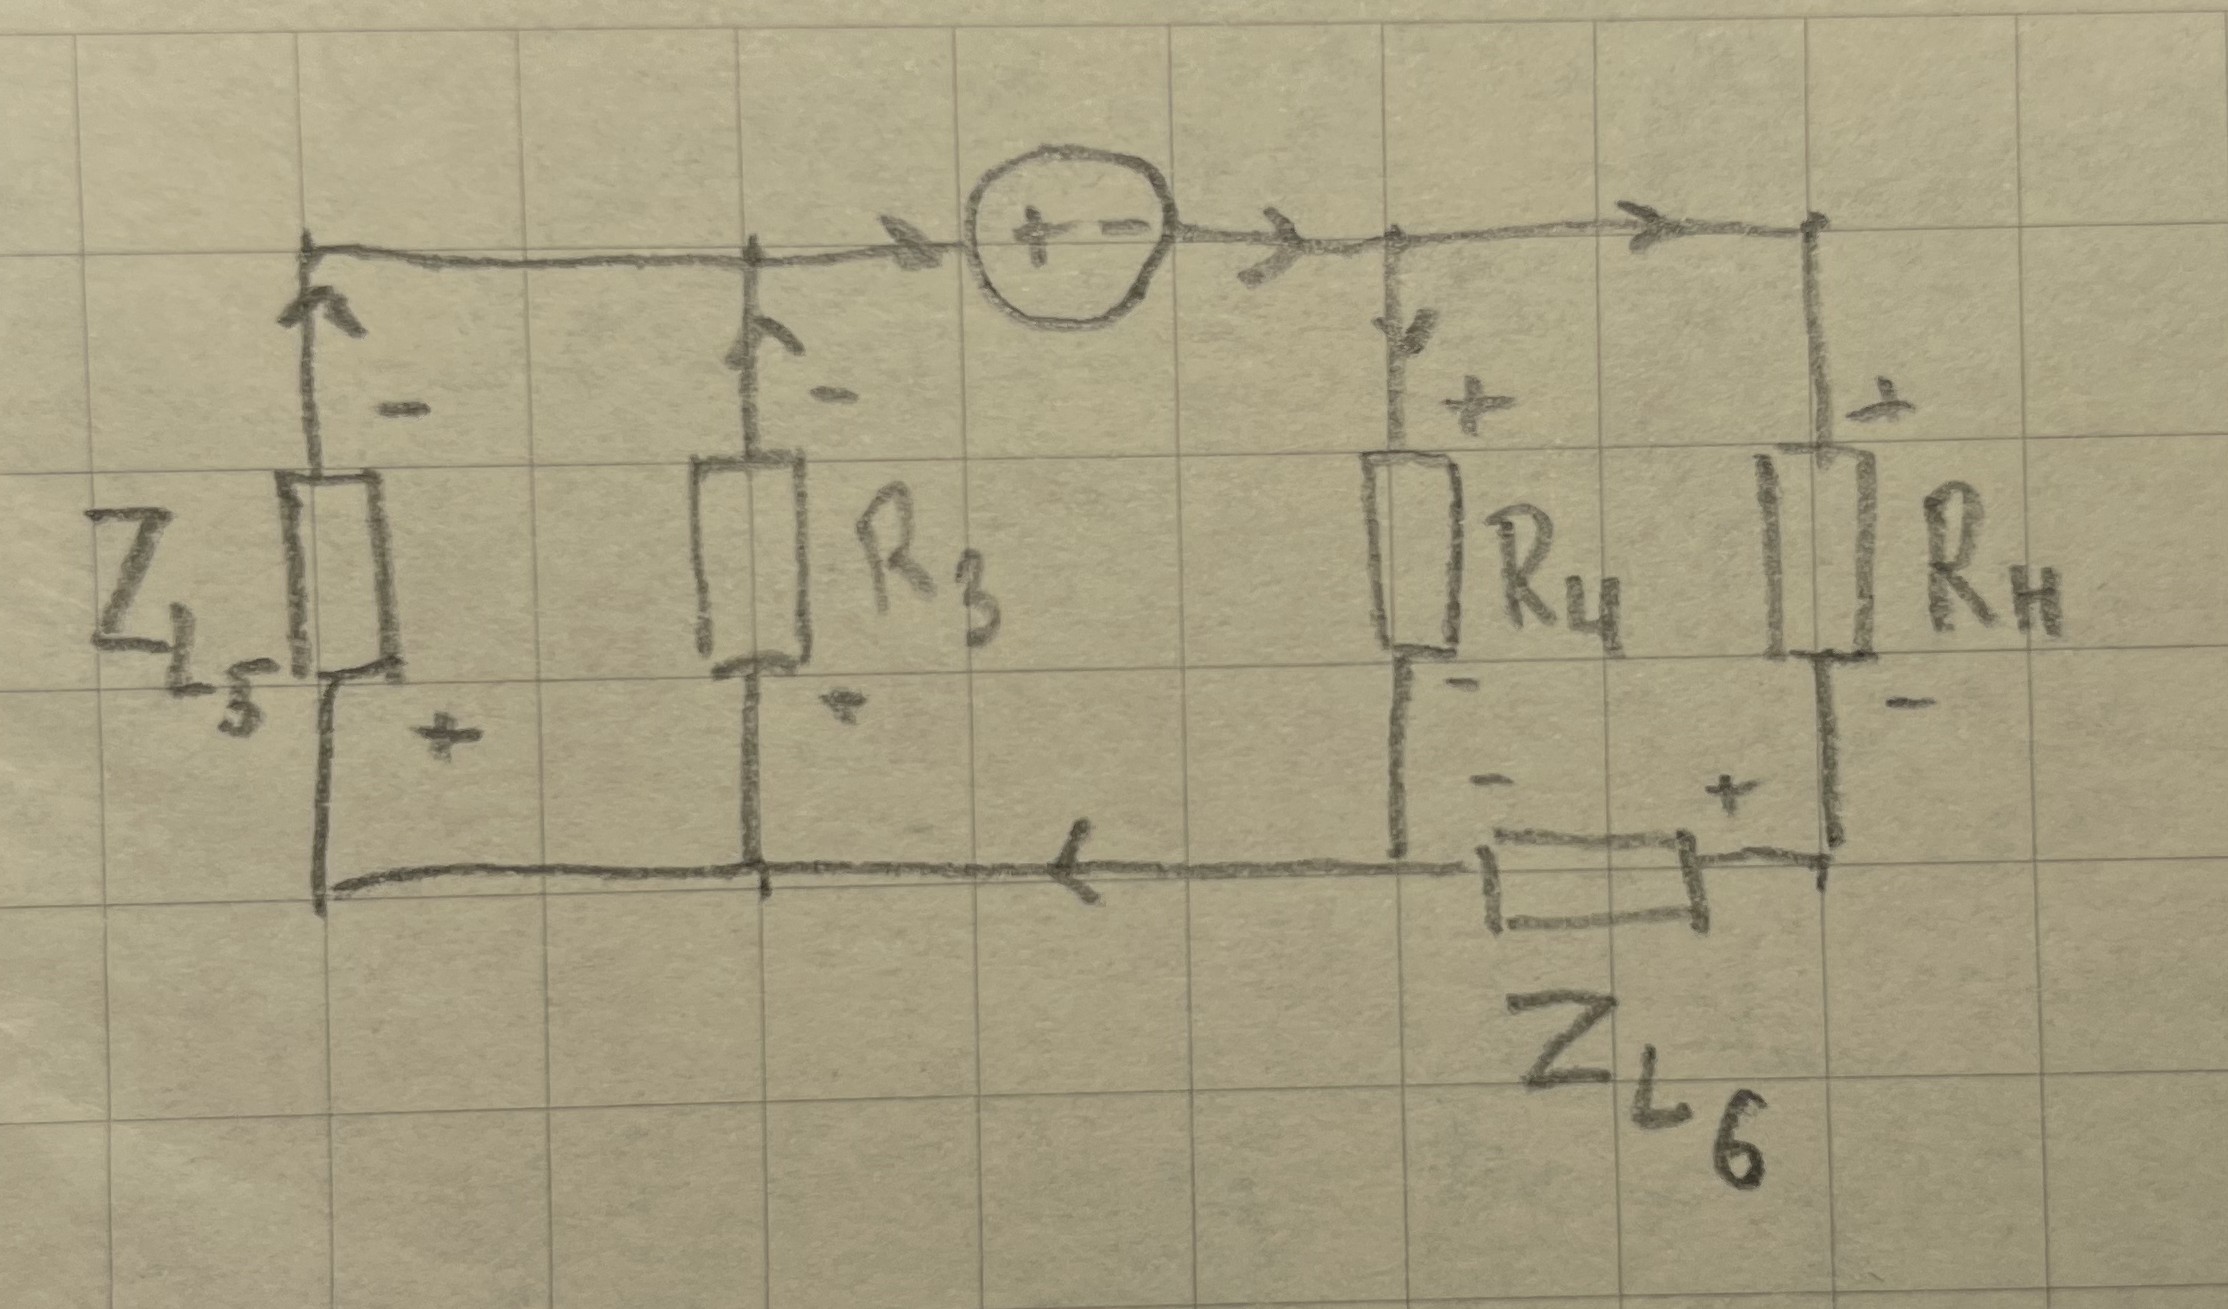 + -
- - + +
Z L 5 R 3 R 4 R H
+ + - -
- +
Z L 6